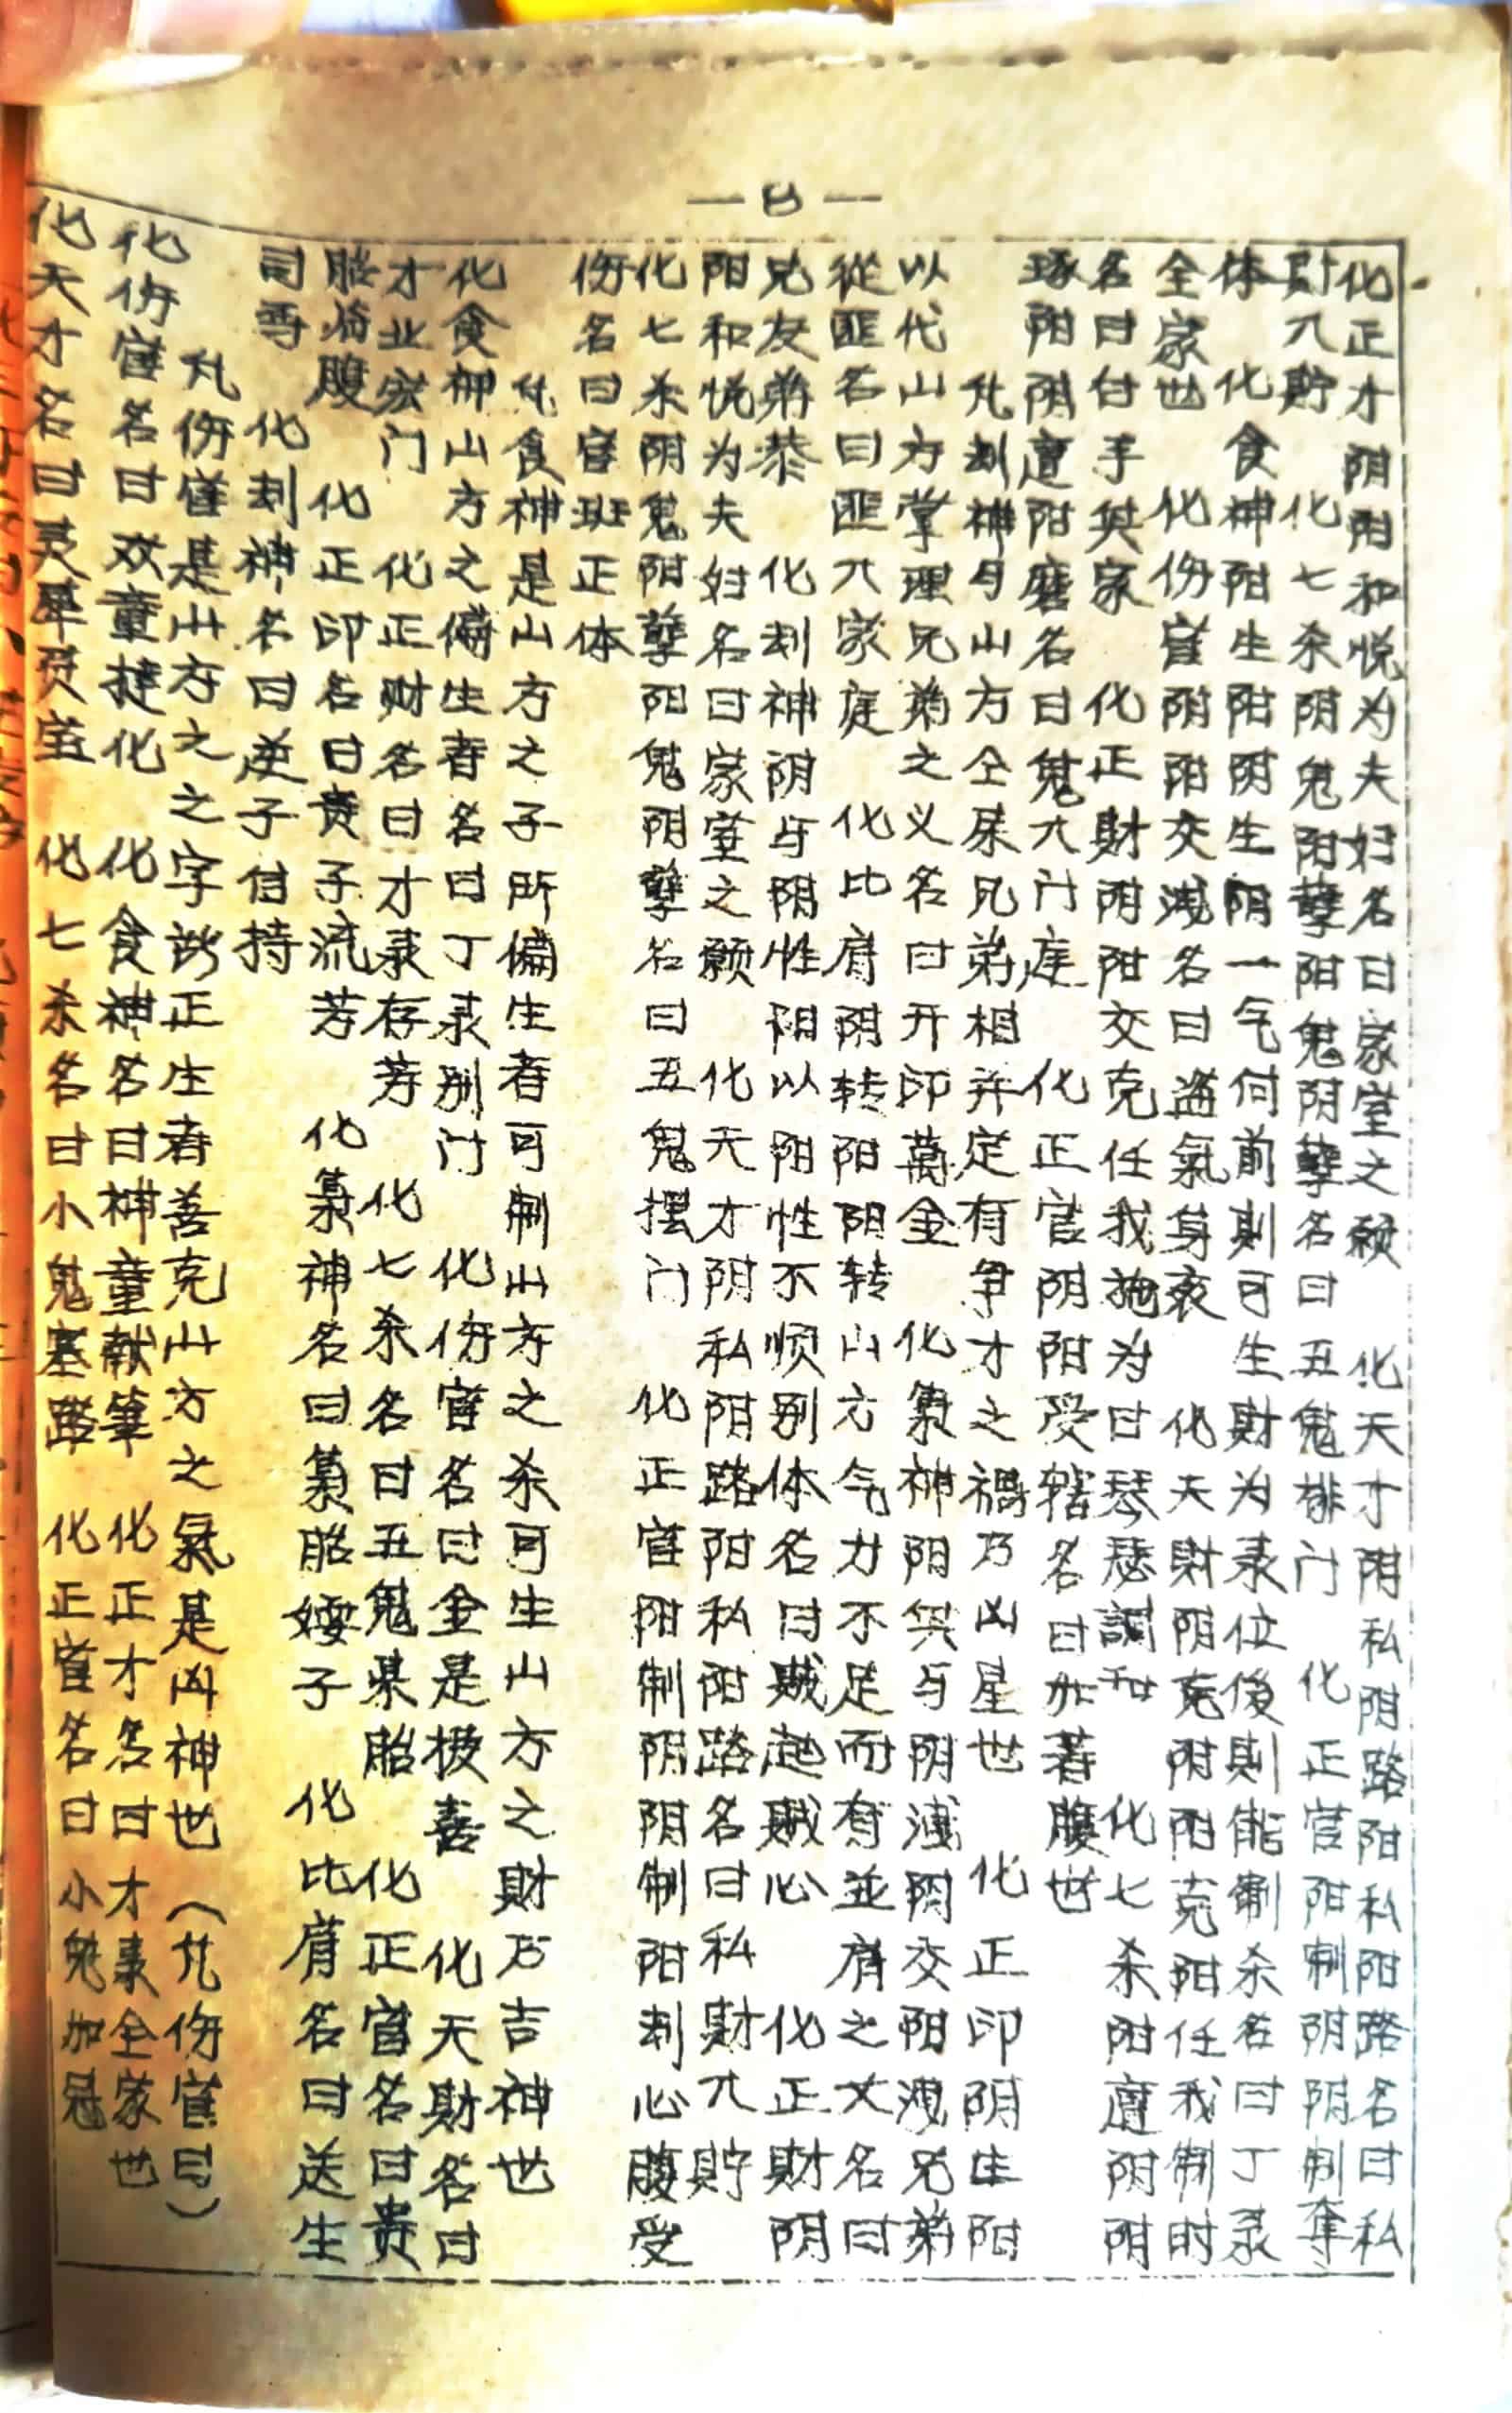 —8—
化正才阴阳和悦为夫妇名曰家堂之颜 化天才阴私阴路阳私阳路名曰私
財入貯 化七杀阴鬼阳孽阳鬼阴孽名曰五鬼排门 化正官阳制阴阴制奪
体 化食神阳生阳阴生阴一气何前則可生財为彔位後則能制杀名曰丁彔
全家也 化伤官阴阳交洩名曰盗氣身衰 化天財阴克阴阳克阳任我制时
名曰付手興家 化正財阴阳交克任我拖为曰琴瑟調和 化七杀阳遭阴阴
琢阳阴遭阳磨名曰鬼入门庭 化正官阴阳受辖名曰加著腹也
凡刦神与山方仝屎凡弟相并定有争才之禍乃凶星也 化正印阴生阳
以代山方掌理兄弟之义名曰开印萬金 化梟神阴與与阴洩阴交阳洩兄弟
從匪名曰匪入家庭 化比肩阴转阳阴转山方气力不足而有並肩之丈名曰
兄友弟恭 化刦神阴与阴性阳以阳性不顺别体名曰賊起賊心 化正財阴
阳和悦为夫妇名曰家堂之颜 化天才阴私阴路阳私阳路名曰私財入貯
化七杀阴鬼阳孽阳鬼阴孽名曰五鬼摆门 化正官阳制阴阴制阳刺心腹受
伤名曰官班正体
凡食神是山方之子所偏生者可制山方之杀可生山方之財乃吉神也
化食神山方之偏生者名曰丁彔别门 化伤官名曰金是极喜 化天財名曰
才业宏门 化正财名曰才彔存芳 化七杀名曰五鬼某胎 化正官名曰贵
胎腹 化正印名曰贵子流芳 化梟神名曰梟胎婑子 化比肩名曰送生
司 化刦神名曰逆子自持
凡伤官是山方之之字訝正生者善克山方之氣是凶神也 （凡伤官曰）
化伤官名曰双童捷化 化食神名曰神童献筆 化正才名曰才彔全家也
化天才名曰灵犀賢宝 化七杀名曰小鬼塞路 化正官名曰小鬼加冠